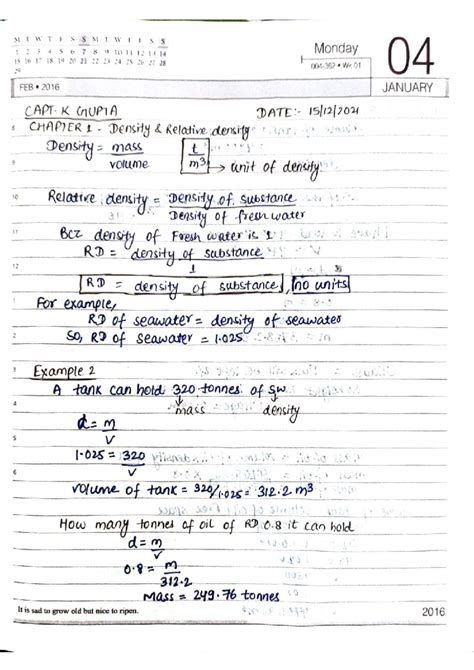 M T W T F S S M T W T F S S
1 2 3 4 5 6 7 8 9 10 11 12 13 14
15 16 17 18 19 20 21 22 23 24 25 26 27 28
29
Monday
004-362 • Wk 01
04
FEB • 2016
JANUARY
CAPT. K GUPTA DATE:- 15/12/2021
8 CHAPTER 1 - Density & Relative density
Density = mass / volume t / m³ → unit of density
9
10 Relative density = Density of substance / Density of fresh water
11 Bcz density of Fresh water is 1
RD = density of substance / 1
12
RD = density of substance, no units
1 For example,
RD of seawater = density of seawater
2 So, RD of seawater = 1.025
3 Example 2
A tank can hold 320 tonnes of SW
4 mass density
d = m / V
5
1.025 = 320 / V
6
volume of tank = 320/1.025 = 312.2 m³
How many tonnes of oil of RD 0.8 it can hold
d = m / V
0.8 = m / 312.2
Mass = 249.76 tonnes
It is sad to grow old but nice to ripen.
2016